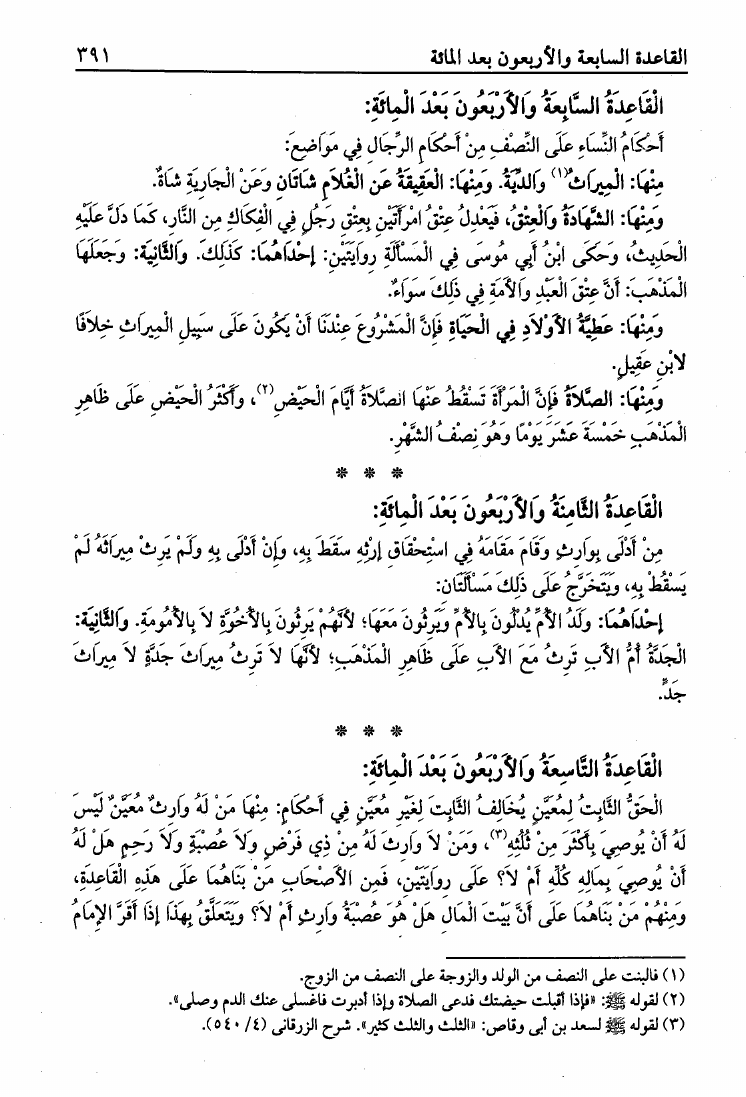 القاعدة السابعة والأربعون بعد المائة ٣٩١
الْقَاعِدَةُ السَّابِعَةُ وَالأَرْبَعُونَ بَعْدَ الْمِائَةِ:
أَحْكَامُ النِّسَاءِ عَلَى النِّصْفِ مِنْ أَحْكَامِ الرِّجَالِ فِي مَوَاضِعَ:
مِنْهَا: الْمِيرَاثُ(١) وَالدِّيَةُ. وَمِنْهَا: الْعَقِيقَةُ عَنِ الْغُلَامِ شَاتَانِ وَعَنْ الْجَارِيَةِ شَاةٌ.
وَمِنْهَا: الشَّهَادَةُ وَالْعِتْقُ، فَيَعْدِلُ عِتْقُ امْرَأَتَيْنِ بِعِتْقِ رَجُلٍ فِي الْفِكَاكِ مِنِ النَّارِ، كَمَا دَلَّ عَلَيْهِ
الْحَدِيثُ، وَحَكَى ابْنُ أَبِي مُوسَى فِي الْمَسْأَلَةِ رِوَايَتَيْنِ: إِحْدَاهُمَا: كَذَلِكَ. وَالثَّانِيَةُ: وَجَعَلَهَا
الْمَذْهَبَ: أَنَّ عِتْقَ الْعَبْدِ وَالأَمَةِ فِي ذَلِكَ سَوَاءٌ.
وَمِنْهَا: عَطِيَّةُ الأَوْلَادِ فِي الْحَيَاةِ فَإِنَّ الْمَشْرُوعَ عِنْدَنَا أَنْ يَكُونَ عَلَى سَبِيلِ الْمِيرَاثِ خِلَافًا
لابْنِ عَقِيلٍ.
وَمِنْهَا: الصَّلَاةُ فَإِنَّ الْمَرْأَةَ تَسْقُطُ عَنْهَا الصَّلَاةُ أَيَّامَ الْحَيْضِ(٢)، وَأَكْثَرُ الْحَيْضِ عَلَى ظَاهِرِ
الْمَذْهَبِ خَمْسَةَ عَشَرَ يَوْمًا وَهُوَ نِصْفُ الشَّهْرِ.
* * *
الْقَاعِدَةُ الثَّامِنَةُ وَالأَرْبَعُونَ بَعْدَ الْمِائَةِ:
مِنْ أَدْلَى بِوَارِثٍ وَقَامَ مَقَامَهُ فِي اسْتِحْقَاقِ إِرْثِهِ سَقَطَ بِهِ، وَإِنْ أَدْلَى بِهِ وَلَمْ يَرِثْ مِيرَاثَهُ لَمْ
يَسْقُطْ بِهِ، وَيَتَخَرَّجُ عَلَى ذَلِكَ مَسْأَلَتَانِ:
إِحْدَاهُمَا: وَلَدُ الأُمِّ يُدْلُونَ بِالأُمِّ وَيَرِثُونَ مَعَهَا؛ لأَنَّهُمْ يَرِثُونَ بِالأُخُوَّةِ لَا بِالأُمُومَةِ. وَالثَّانِيَةُ:
الْجَدَّةُ أُمُّ الأَبِ تَرِثُ مَعَ الأَبِ عَلَى ظَاهِرِ الْمَذْهَبِ؛ لأَنَّهَا لَا تَرِثُ مِيرَاثَ جَدَّةٍ لَا مِيرَاثَ
جَدٍّ.
* * *
الْقَاعِدَةُ التَّاسِعَةُ وَالأَرْبَعُونَ بَعْدَ الْمِائَةِ:
الْحَقُّ الثَّابِتُ لِمُعَيَّنٍ يُخَالِفُ الثَّابِتَ لِغَيْرِ مُعَيَّنٍ فِي أَحْكَامٍ: مِنْهَا مَنْ لَهُ وَارِثٌ مُعَيَّنٌ لَيْسَ
لَهُ أَنْ يُوصِيَ بِأَكْثَرَ مِنْ ثُلُثِهِ(٣)، وَمَنْ لَا وَارِثَ لَهُ مِنْ ذِي فَرْضٍ وَلَا عَصَبَةٍ وَلَا رَحِمٍ هَلْ لَهُ
أَنْ يُوصِيَ بِمَالِهِ كُلِّهِ أَمْ لَا؟ عَلَى رِوَايَتَيْنِ، فَمِن الأَصْحَابِ مَنْ بَنَاهُمَا عَلَى هَذِهِ الْقَاعِدَةِ،
وَمِنْهُمْ مَنْ بَنَاهُمَا عَلَى أَنَّ بَيْتَ الْمَالِ هَلْ هُوَ عَصَبَةُ وَارِثٍ أَمْ لَا؟ وَيَتَعَلَّقُ بِهَذَا إِذَا أَقَرَّ الإِمَامُ
(١) فالبنت على النصف من الولد والزوجة على النصف من الزوج.
(٢) لقوله ﷺ: «فإذا أقبلت حيضتك فدعى الصلاة وإذا أدبرت فاغسلى عنك الدم وصلى».
(٣) لقوله ﷺ لسعد بن أبى وقاص: «الثلث والثلث كثير». شرح الزرقانى (٤/ ٥٤٠).